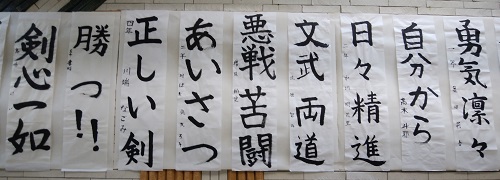 勇気凛々
自分から
日々精進
文武両道
悪戦苦闘
あいさつ
正しい剣
四年 川端 なごみ
勝つ!!
剣心一如